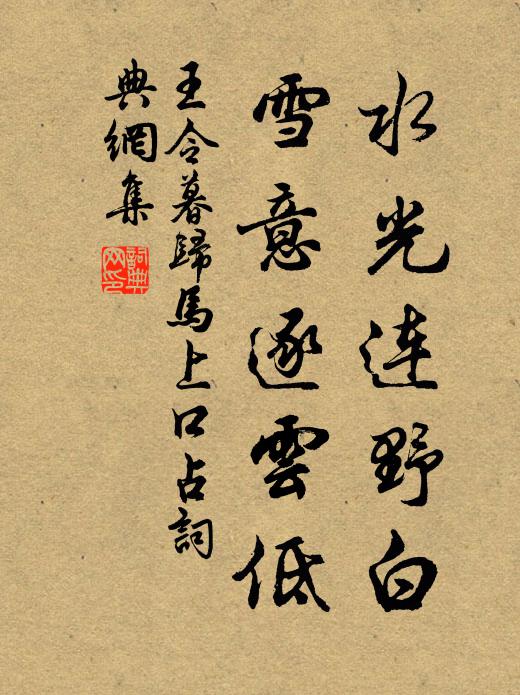 水光連野白
雪意逐雲低
王令暮歸馬上口占詞
典網集
詞典
网印